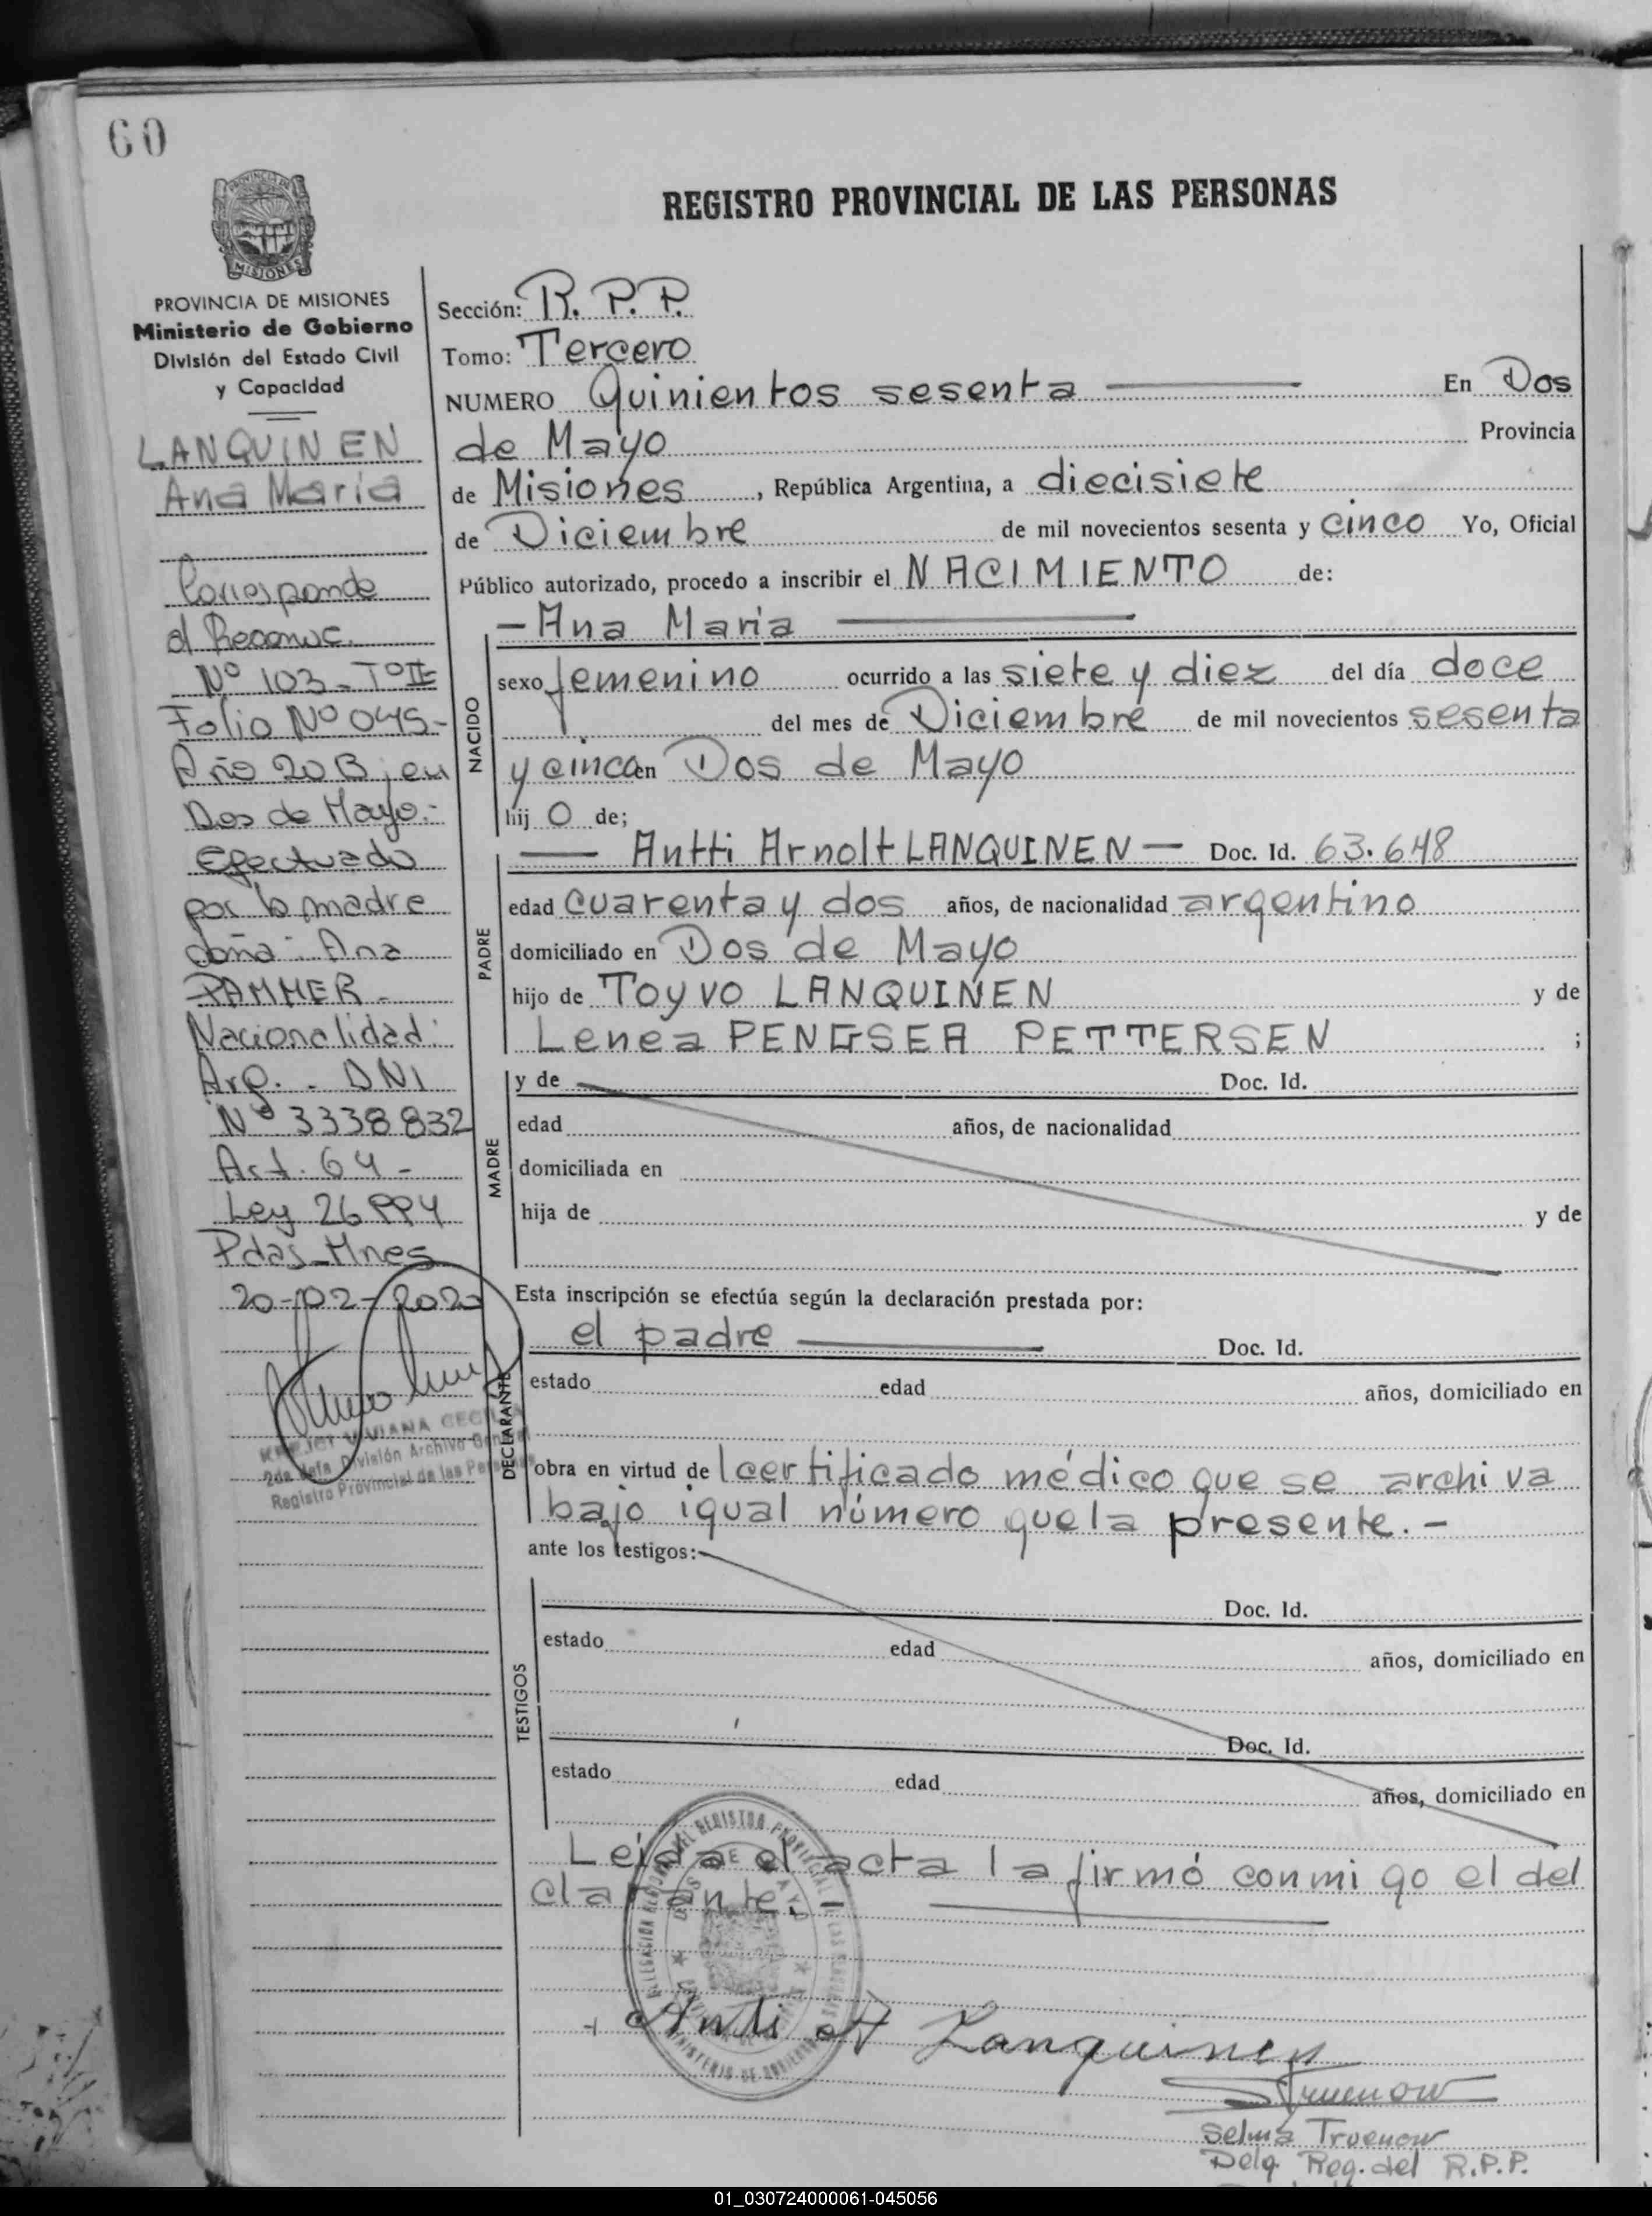 60
PROVINCIA DE
MISIONES
REGISTRO PROVINCIAL DE LAS PERSONAS
PROVINCIA DE MISIONES
Ministerio de Gobierno
División del Estado Civil
y Capacidad
LANQUINEN
Ana Maria
Corresponde
al Reconoc.
Nº 103 - Tº II
Folio Nº 045 -
Año 2013, en
Dos de Mayo.-
Efectuado
por la madre
doña: Ana
PAMMER -
Nacionalidad:
Arg. - DNI
Nº 3338832
Art. 64 -
Ley 26994
Pdas - Mnes
20-02-2020
KREJCI VIVIANA CECILIA
2da Jefa División Archivo General
Registro Provincial de las Personas
Sección: R. P. P.
Tomo: Tercero
NUMERO Quinientos sesenta En Dos
de Mayo Provincia
de Misiones, República Argentina, a diecisiete
de Diciembre de mil novecientos sesenta y cinco Yo, Oficial
Público autorizado, procedo a inscribir el NACIMIENTO de:
- Ana Maria
NACIDO
sexo femenino ocurrido a las siete y diez del día doce
del mes de Diciembre de mil novecientos sesenta
y cinco en Dos de Mayo
hij O de;
PADRE
Antti Arnolt LANQUINEN - Doc. Id. 63.648
edad cuarenta y dos años, de nacionalidad argentino
domiciliado en Dos de Mayo
hijo de Toyvo LANQUINEN y de
Lenea PENGSEA PETTERSEN ;
MADRE
y de Doc. Id.
edad años, de nacionalidad
domiciliada en
hija de y de
Esta inscripción se efectúa según la declaración prestada por:
DECLARANTE
el padre Doc. Id.
estado edad años, domiciliado en
obra en virtud del certificado médico que se archiva
bajo igual número que la presente. -
ante los testigos:
TESTIGOS
Doc. Id.
estado edad años, domiciliado en
Doc. Id.
estado edad años, domiciliado en
Leída el acta la firmó conmigo el del
clarante. -
Antti Lanquinen
Struenow
Selma Truenow
Delg. Reg. del R.P.P.
01_030724000061-045056